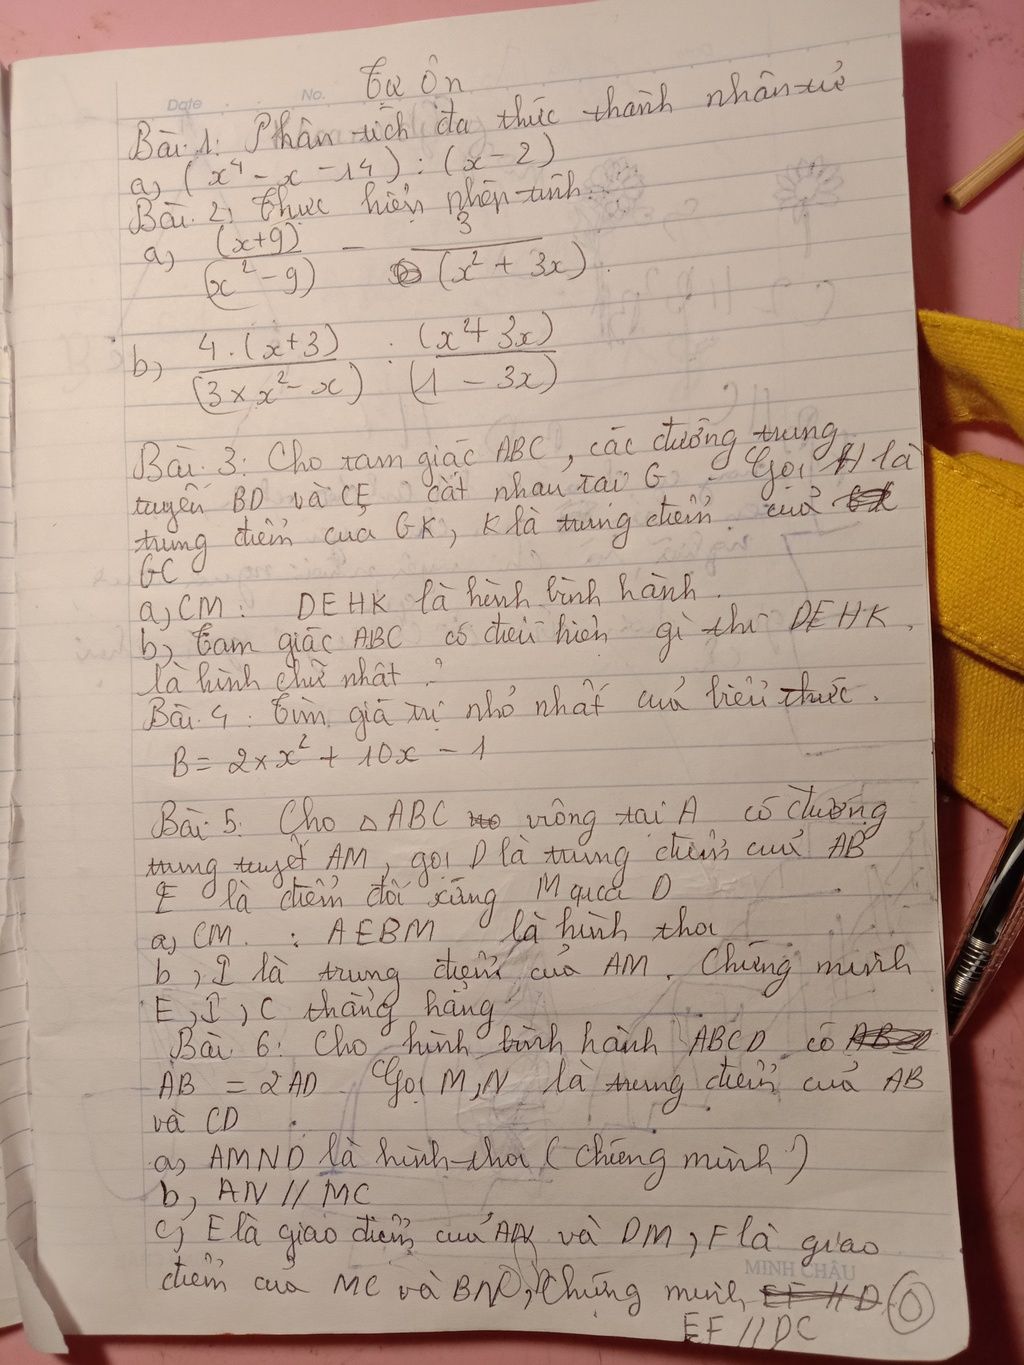 Tự Ôn
Date No.
Bài 1: Phân tích đa thức thành nhân tử
a, (x⁴ - x - 14) : (x - 2)
Bài 2: Thực hiện phép tính.
a, (x+9)/(x² - 9) - 3/(x² + 3x).
b, 4.(x+3)/(3 × x² - x) : (x² + 3x)/(1 - 3x)
Bài 3: Cho tam giác ABC, các đường trung
tuyến BD và CE cắt nhau tại G. Gọi H là
trung điểm của GK, K là trung điểm của
GC
a, CM: DEHK là hình bình hành.
b, Tam giác ABC có điều kiện gì thì DEHK
là hình chữ nhật?
Bài 4: Tìm giá trị nhỏ nhất của biểu thức.
B = 2 × x² + 10x - 1
Bài 5: Cho △ABC vuông tại A có đường
trung tuyết AM, gọi D là trung điểm của AB
E là điểm đối xứng M qua D
a, CM: AEBM là hình thoi
b, I là trung điểm của AM. Chứng minh
E, I, C thẳng hàng
Bài 6: Cho hình bình hành ABCD có
AB = 2AD Gọi M, N là trung điểm của AB
và CD
a, AMND là hình thoi (Chứng minh)
b, AN // MC
c, E là giao điểm của AN và DM, F là giao
điểm của MC và BN, Chứng minh
EF // DC
MINH CHÂU